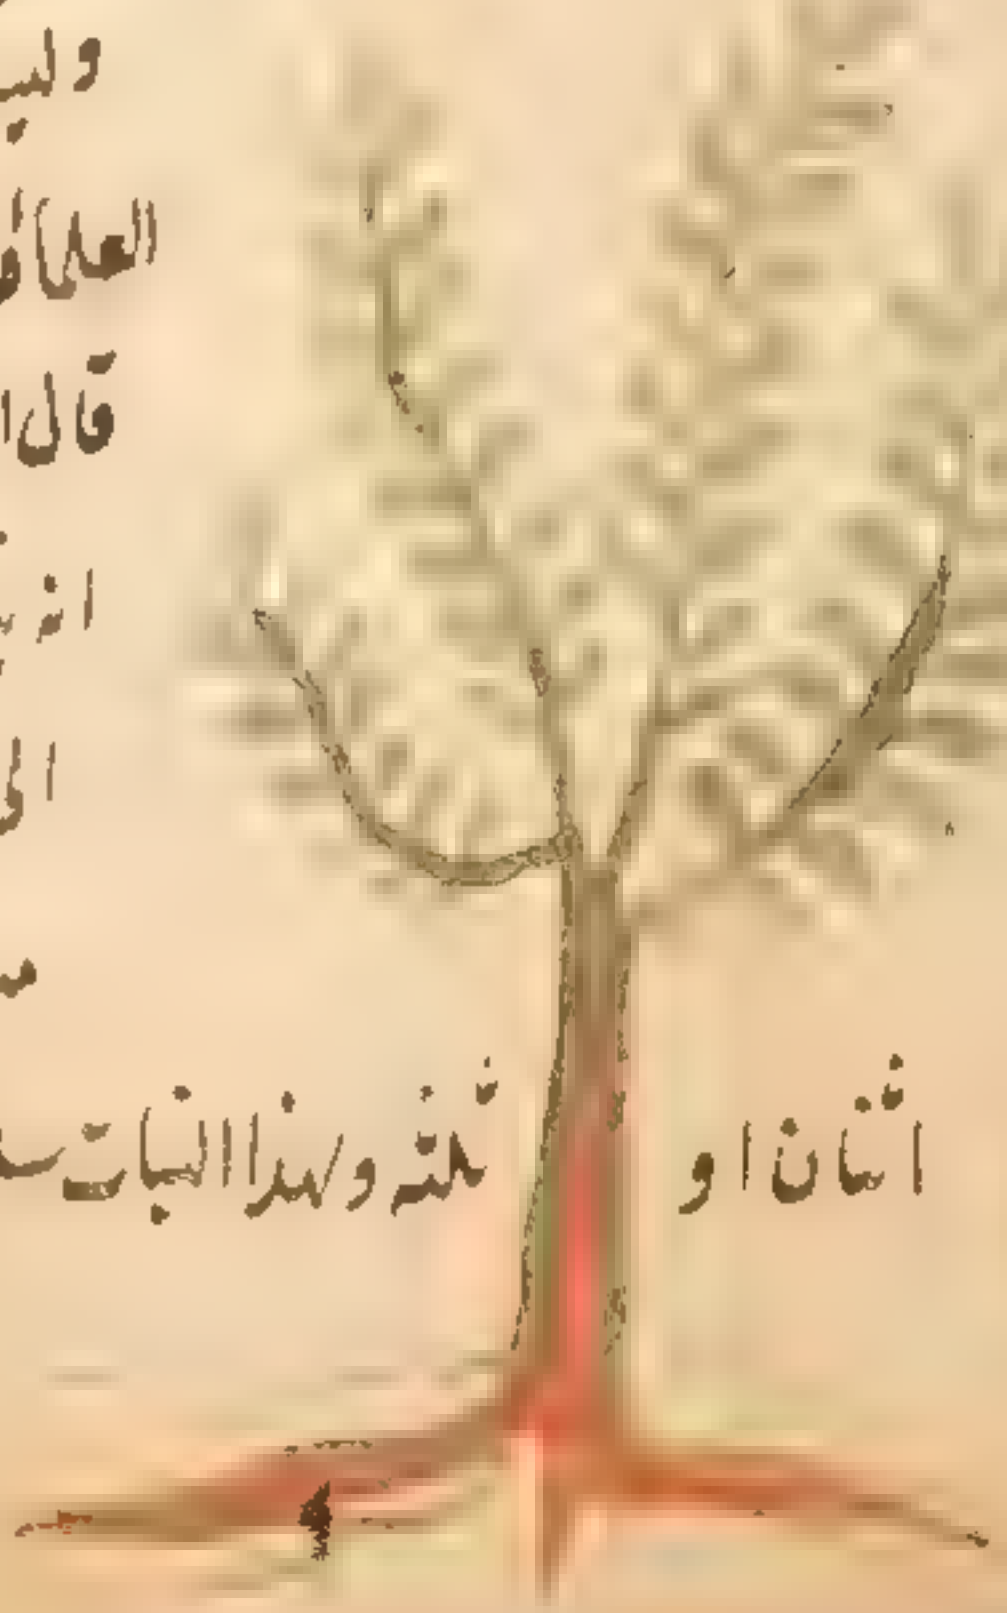 و
العلما
قال
انه
الى
اثنان او ثلثه وهذا النبات